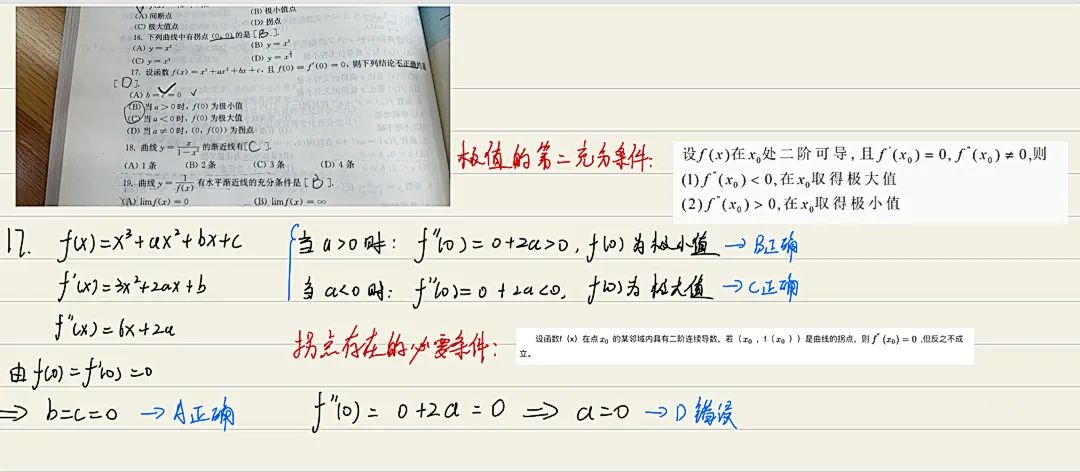 (A) 间断点 (B) 极小值点
(C) 极大值点 (D) 拐点
16. 下列曲线中有拐点 (0,0) 的是 [B.]
(A) y = x² (B) y = x³
(C) y = x⁴
17. 设函数 f(x) = x³ + ax² + bx + c, 且 f(0) = f'(0) = 0, 则下列结论不正确的是
[D].
(A) b = c = 0
(B) 当 a > 0 时, f(0) 为极小值
(C) 当 a < 0 时, f(0) 为极大值
(D) 当 a ≠ 0 时, (0, f(0)) 为拐点
18. 曲线 y = x/(1-x²) 的渐近线有 [C].
(A) 1 条 (B) 2 条 (C) 3 条 (D) 4 条
19. 曲线 y = 1/f(x) 有水平渐近线的充分条件是 [B].
(A) lim f(x) = 0 (B) lim f(x) = ∞
极值的第二充分条件:
设f(x)在x₀处二阶可导,且f'(x₀) = 0, f"(x₀) ≠ 0,则
(1)f"(x₀) < 0,在x₀取得极大值
(2)f"(x₀) > 0,在x₀取得极小值
17. f(x)=x³+ax²+bx+c
f'(x)=3x²+2ax+b
f"(x)=6x+2a
由 f(0)=f'(0)=0
⇒ b=c=0 → A正确
当 a>0 时: f"(0)=0+2a>0, f(0) 为极小值 → B正确
当 a<0 时: f"(0)=0+2a<0, f(0) 为极大值 → C正确
拐点存在的必要条件:
设函数f(x)在点 x₀ 的某邻域内具有二阶连续导数，若（x₀，f（x₀））是曲线的拐点，则 f"(x₀) = 0 ,但反之不成
立。
f"(0)= 0+2a = 0 ⇒ a=0 → D 错误